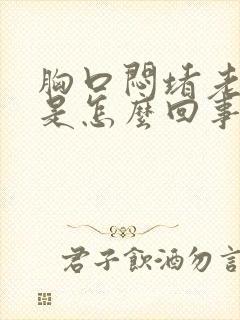 胸口悶堵老
是怎麼回事
君子飲酒勿言